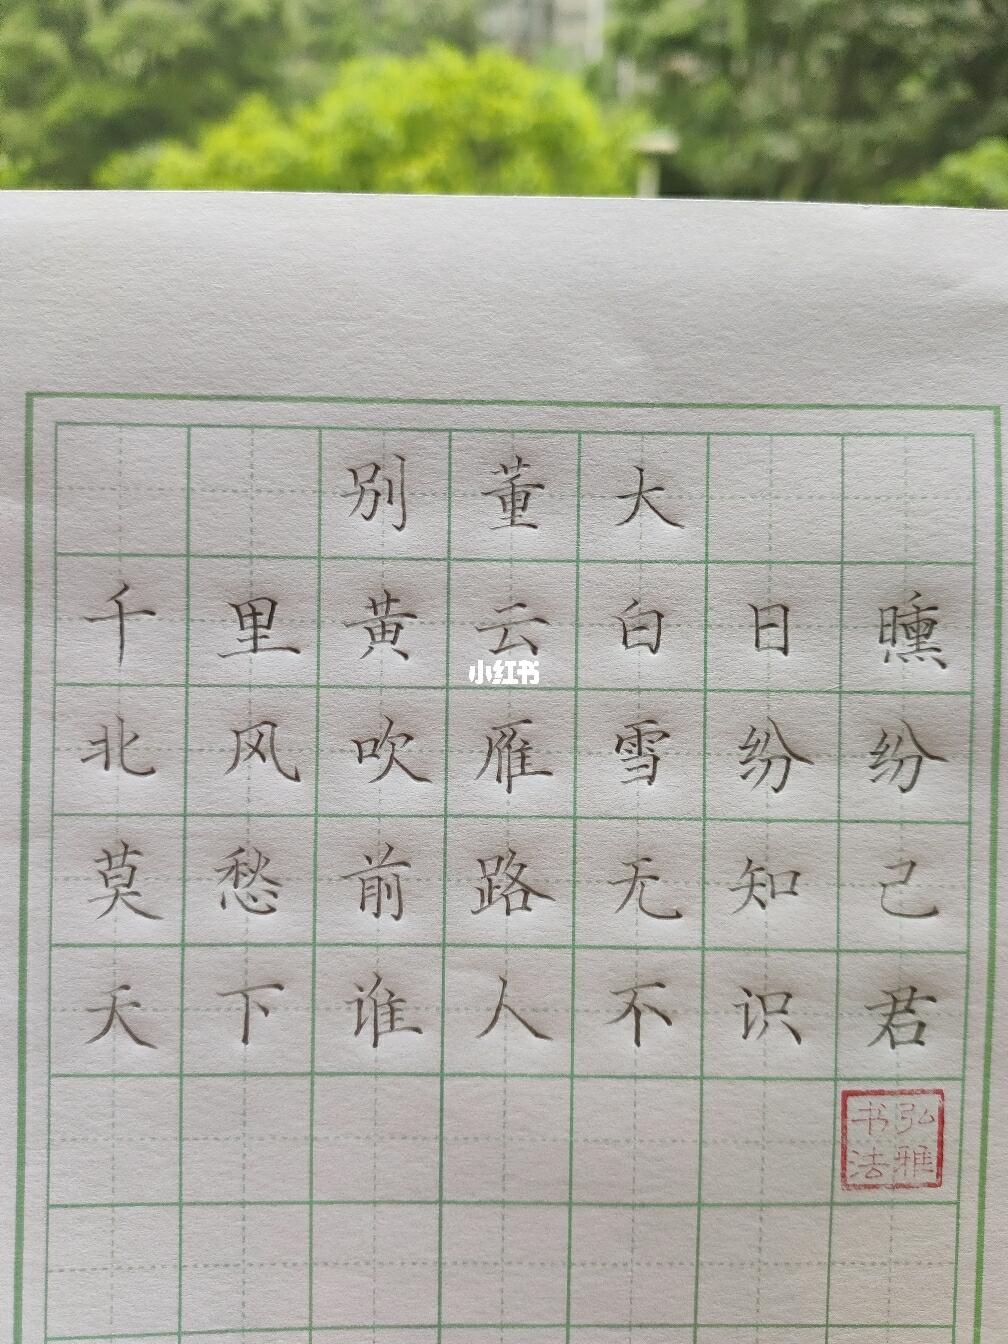 别董大
千里黄云白日曛
小红书
北风吹雁雪纷纷
莫愁前路无知己
天下谁人不识君
弘雅书法